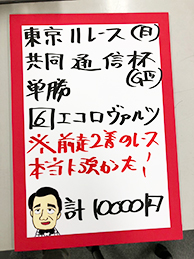 東京11レース(月)
共同通信杯
(GⅢ)
単勝
6 エコロヴァルツ
※前走2着のレース
本当に強かった!
計10000円